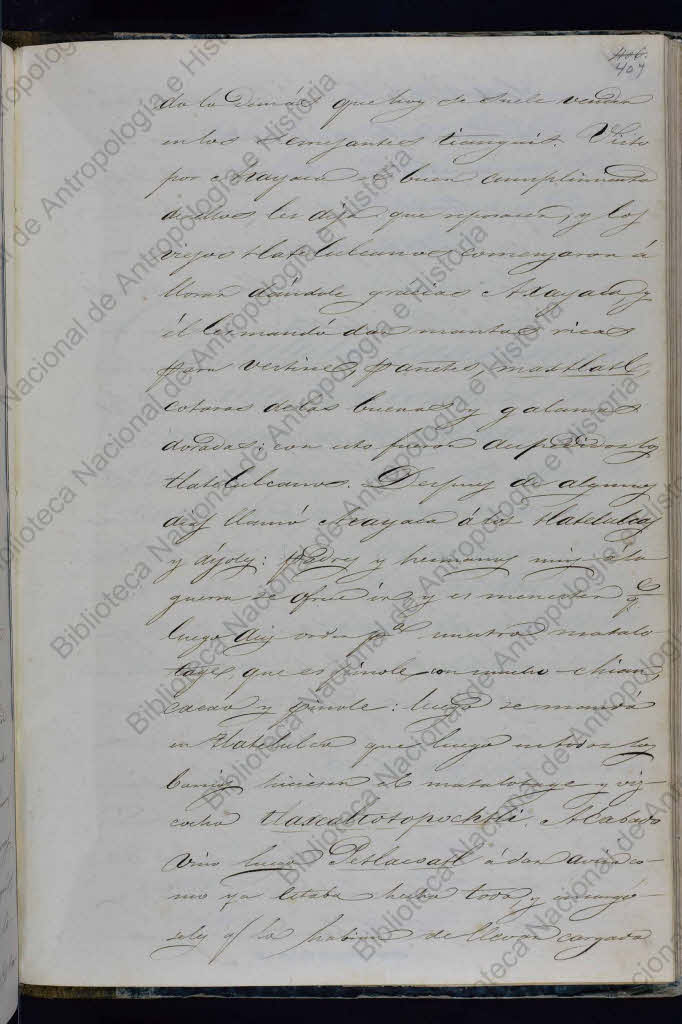 406.
407
do lo demás que hoy se suele vender
en los semejantes tianguis. Visto
por Axayaca el buen cumplimiento
de ellos les dijo que reposasen, y los
viejos tlatelulcanos comenzaron á
llorar dándole gracias Axayaca, y
él les mandó dar mantas ricas
para vestirse, pañetes, maxtlatl,
cotaras de las buenas y galanas
doradas: con esto fueron despedidos los
tlatelulcanos. Despues de algunos
dias llamó Axayaca á los tlatelulcas
y díjoles: padres y hermanos mios á la
guerra se ofrece ir, y es menester q.e
luego deis orden p.a nuestro matalo
tage, que es pinole con mucho chian,
cacao y pinole: luego se mandó
en Tlatelulco que luego en todos los
barrios hiciesen el matalotage y viz-
cocho tlaxcaltotopochtli. Acabado
vino luego Petlacatl á dar aviso co-
mo ya estaba hecho todo y encargó-
seles q.e lo habian de llevar cargado
Biblioteca Nacional de Antropología e Historia